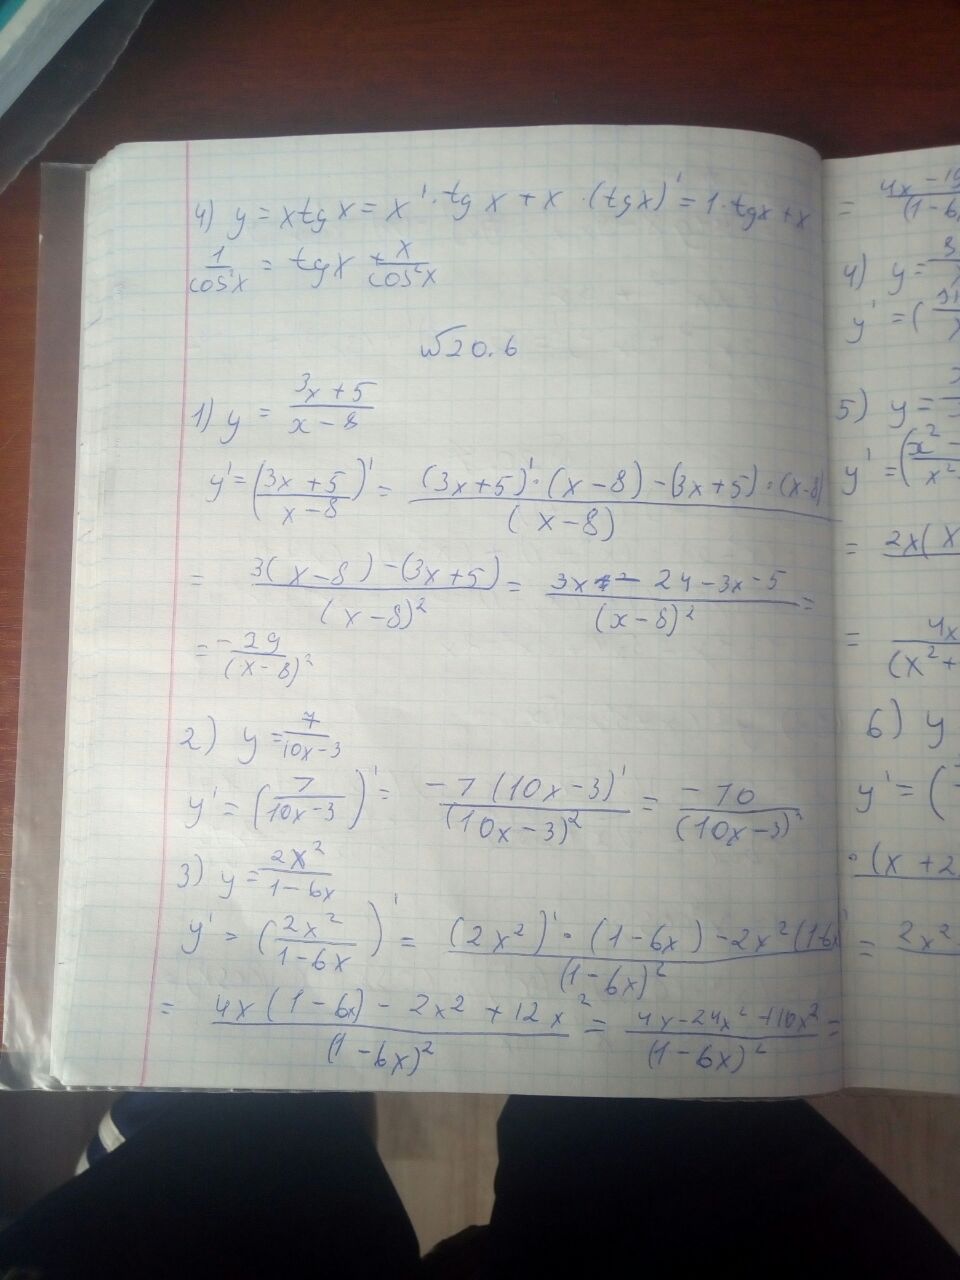 4) y = xtg x = x' · tg x + x · (tgx)' = 1 · tgx + x
1/cos²x = tgx + x/cos²x
№20.6
1) y = (3x + 5)/(x - 8)
y' = ((3x + 5)/(x - 8))' = ((3x+5)' · (x - 8) - (3x+5) · (x-8)/(x - 8)
= (3(x-8) - (3x+5))/(x-8)² = (3x - 24 - 3x - 5)/(x-8)² =
= -29/(x-8)²
2) y = 7/(10x-3)
y' = (7/(10x-3))' = (-7(10x-3)')/(10x-3)² = -70/(10x-3)²
3) y = 2x²/(1-6x)
y' = (2x²/(1-6x))' = ((2x²)' · (1-6x) - 2x²(1-6x)'/(1-6x)²
= (4x(1-6x) - 2x² + 12x²)/(1-6x)² = (4x-24x²+10x²)/(1-6x)² =
=
4) y =
y' = (
5) y =
y' = (
= 2x(x
= 4x
(x²+
6) y
y' = (
· (x + 2
= 2x²